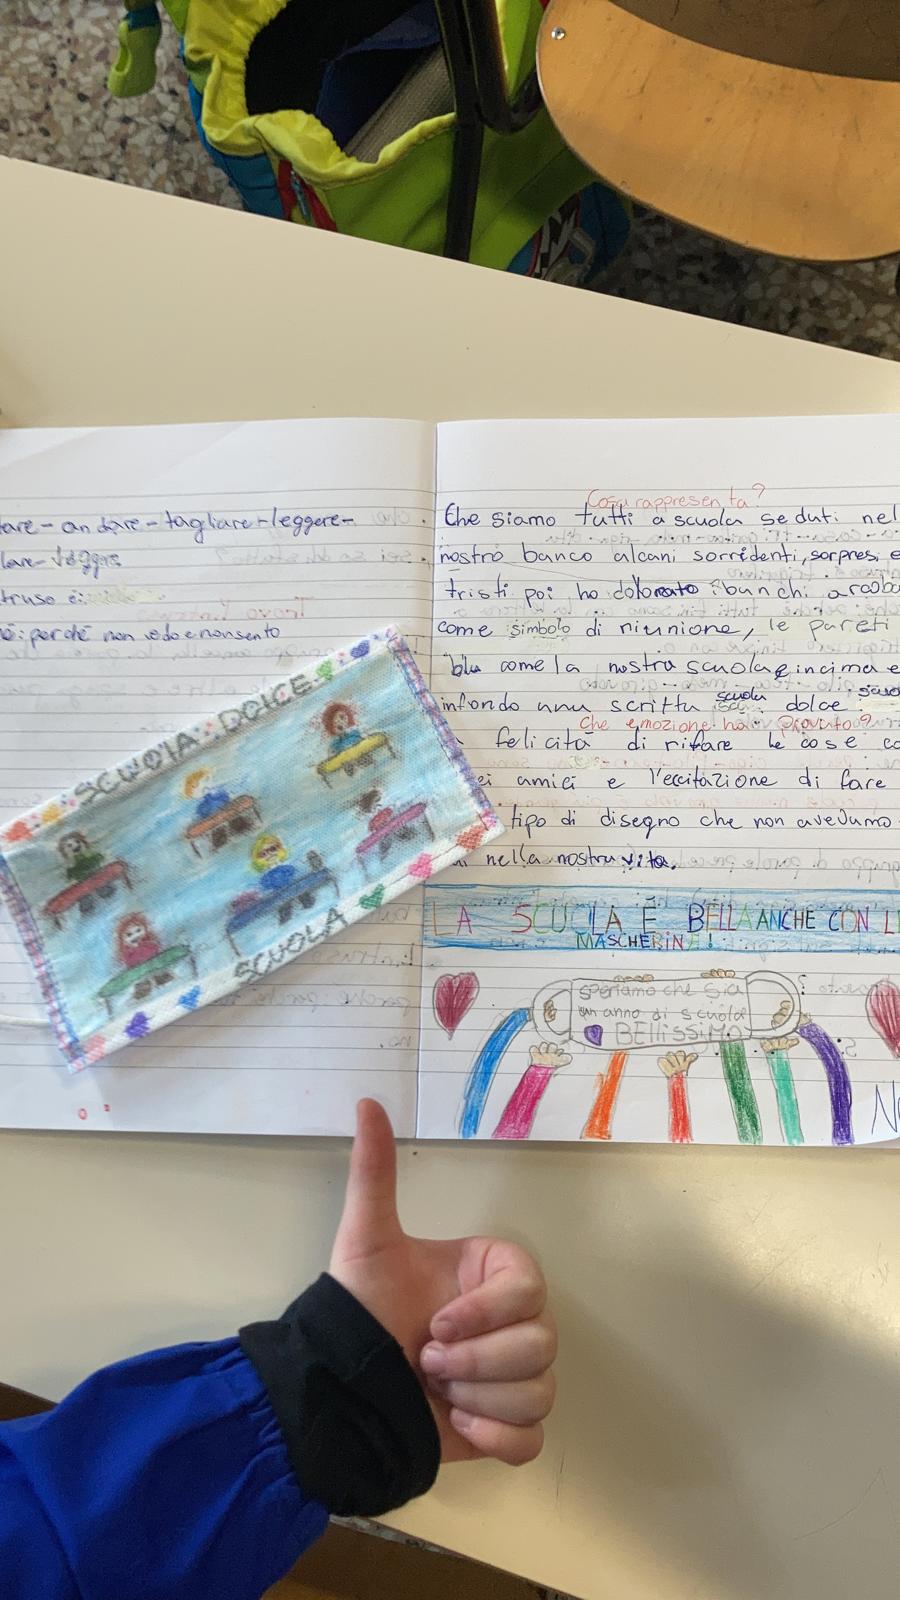 tare - andare - tagliare - leggere -
lare - leggere
truso è:
é: perché non vedo e non sento
SCUOlA DOLCE
SCUOLA
Cosa rappresenta?
Che siamo tutti a scuola seduti nel
nostro banco alcani sorridenti, sorpresi e
tristi poi ho colorato i banchi arcoba
come simbolo di riunione, le pareti
blu come la nostra scuola e in cima e
infondo una scritta scuola dolce
che emozione hai provato?
felicità di rifare le cose co
ei amici e l'eccitazione di fare
tipo di disegno che non avevamo
nella nostra vita.
LA SCUOLA È BELLA ANCHE CON LE
MASCHERINE!
speriamo che sia
un anno di scuola
BELLISSIMO